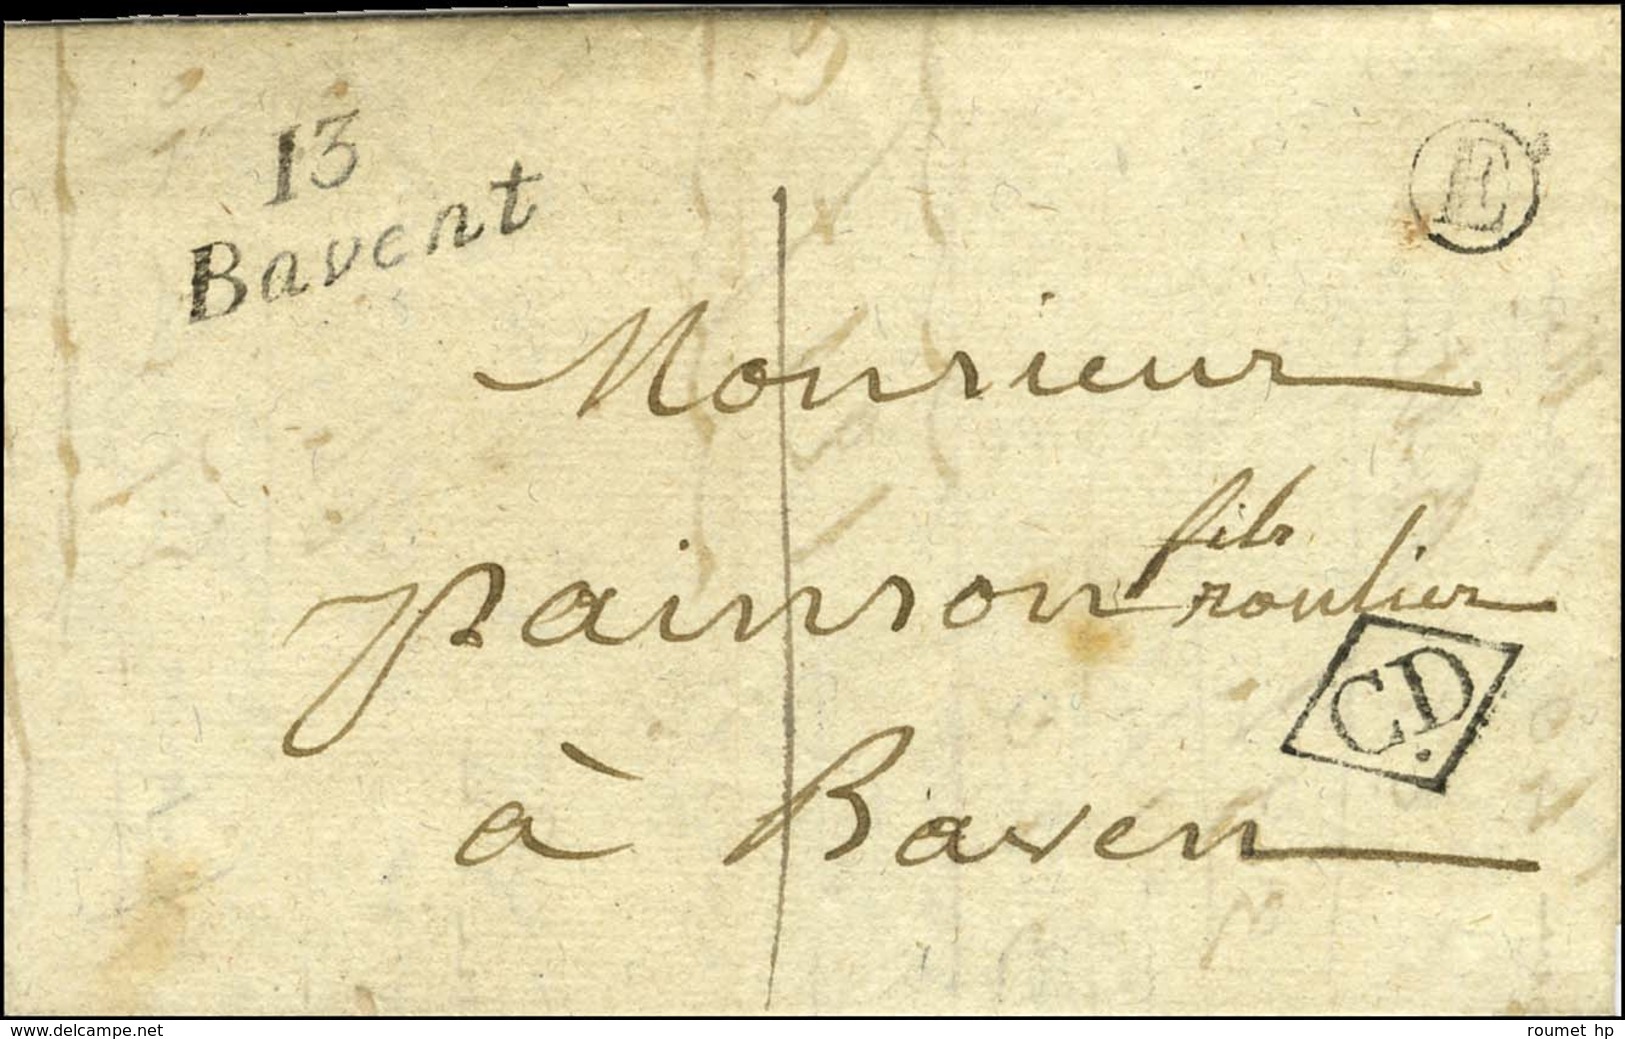 13
Bavent
E
Monsieur
painson fils
roulier
C.D.
à Baven
www.delcampe.net
roumet hp